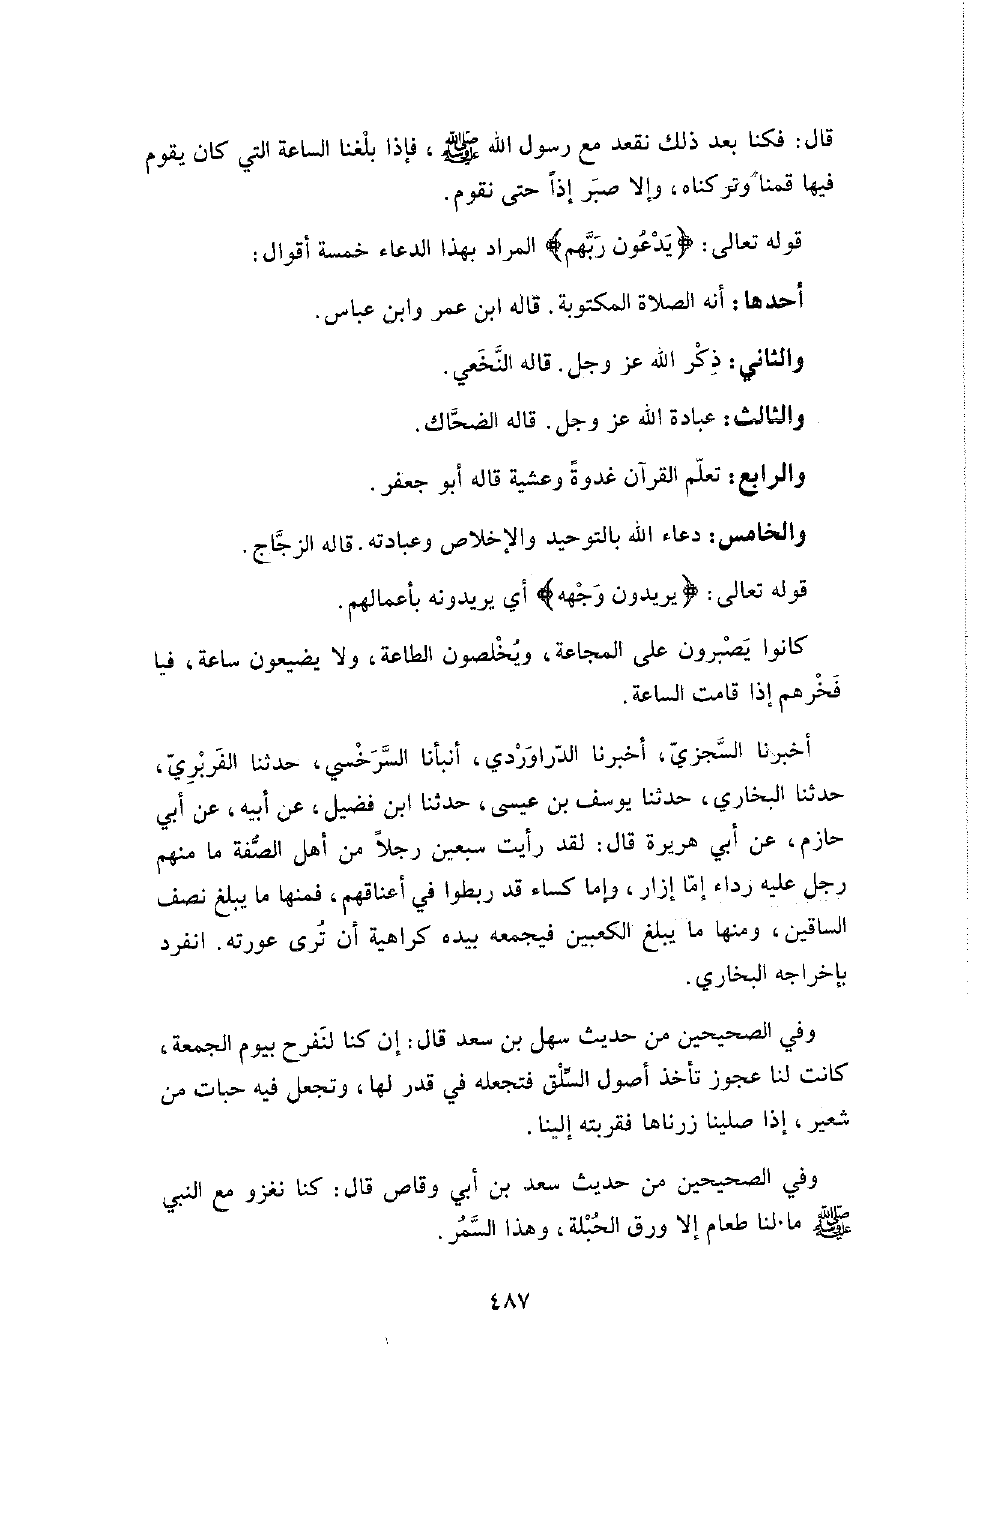 قال: فكنا بعد ذلك نقعد مع رسول الله ﷺ، فإذا بلْغنا الساعة التي كان يقوم
فيها قمنا وتركناه، وإلا صبَر إذاً حتى نقوم.
قوله تعالى: ﴿يَدْعُون رَبَّهم﴾ المراد بهذا الدعاء خمسة أقوال:
أحدها: أنه الصلاة المكتوبة. قاله ابن عمر وابن عباس.
والثاني: ذِكْر الله عز وجل. قاله النَّخَعي.
والثالث: عبادة الله عز وجل. قاله الضحَّاك.
والرابع: تعلّم القرآن غدوةً وعشية قاله أبو جعفر.
والخامس: دعاء الله بالتوحيد والإخلاص وعبادته. قاله الزجَّاج.
قوله تعالى: ﴿يريدون وَجْهه﴾ أي يريدونه بأعمالهم.
كانوا يَصْبرون على المجاعة، ويُخْلصون الطاعة، ولا يضيعون ساعة، فيا
فَخْرهم إذا قامت الساعة.
أخبرنا السَّجزيّ، أخبرنا الدّراوَرْدي، أنبأنا السَّرَخْسي، حدثنا الفَربْرِيّ،
حدثنا البخاري، حدثنا يوسف بن عيسى، حدثنا ابن فضيل، عن أبيه، عن أبي
حازم، عن أبي هريرة قال: لقد رأيت سبعين رجلاً من أهل الصُّفة ما منهم
رجل عليه رداء إمّا إزار، وإما كساء قد ربطوا في أعناقهم، فمنها ما يبلغ نصف
الساقين، ومنها ما يبلغ الكعبين فيجمعه بيده كراهية أن تُرى عورته. انفرد
بإخراجه البخاري.
وفي الصحيحين من حديث سهل بن سعد قال: إن كنا لنَفرح بيوم الجمعة،
كانت لنا عجوز تأخذ أصول السِّلْق فتجعله في قدر لها، وتجعل فيه حبات من
شعير، إذا صلينا زرناها فقربته إلينا.
وفي الصحيحين من حديث سعد بن أبي وقاص قال: كنا نغزو مع النبي
ﷺ ما لنا طعام إلا ورق الحُبْلة، وهذا السَّمُر.
٤٨٧